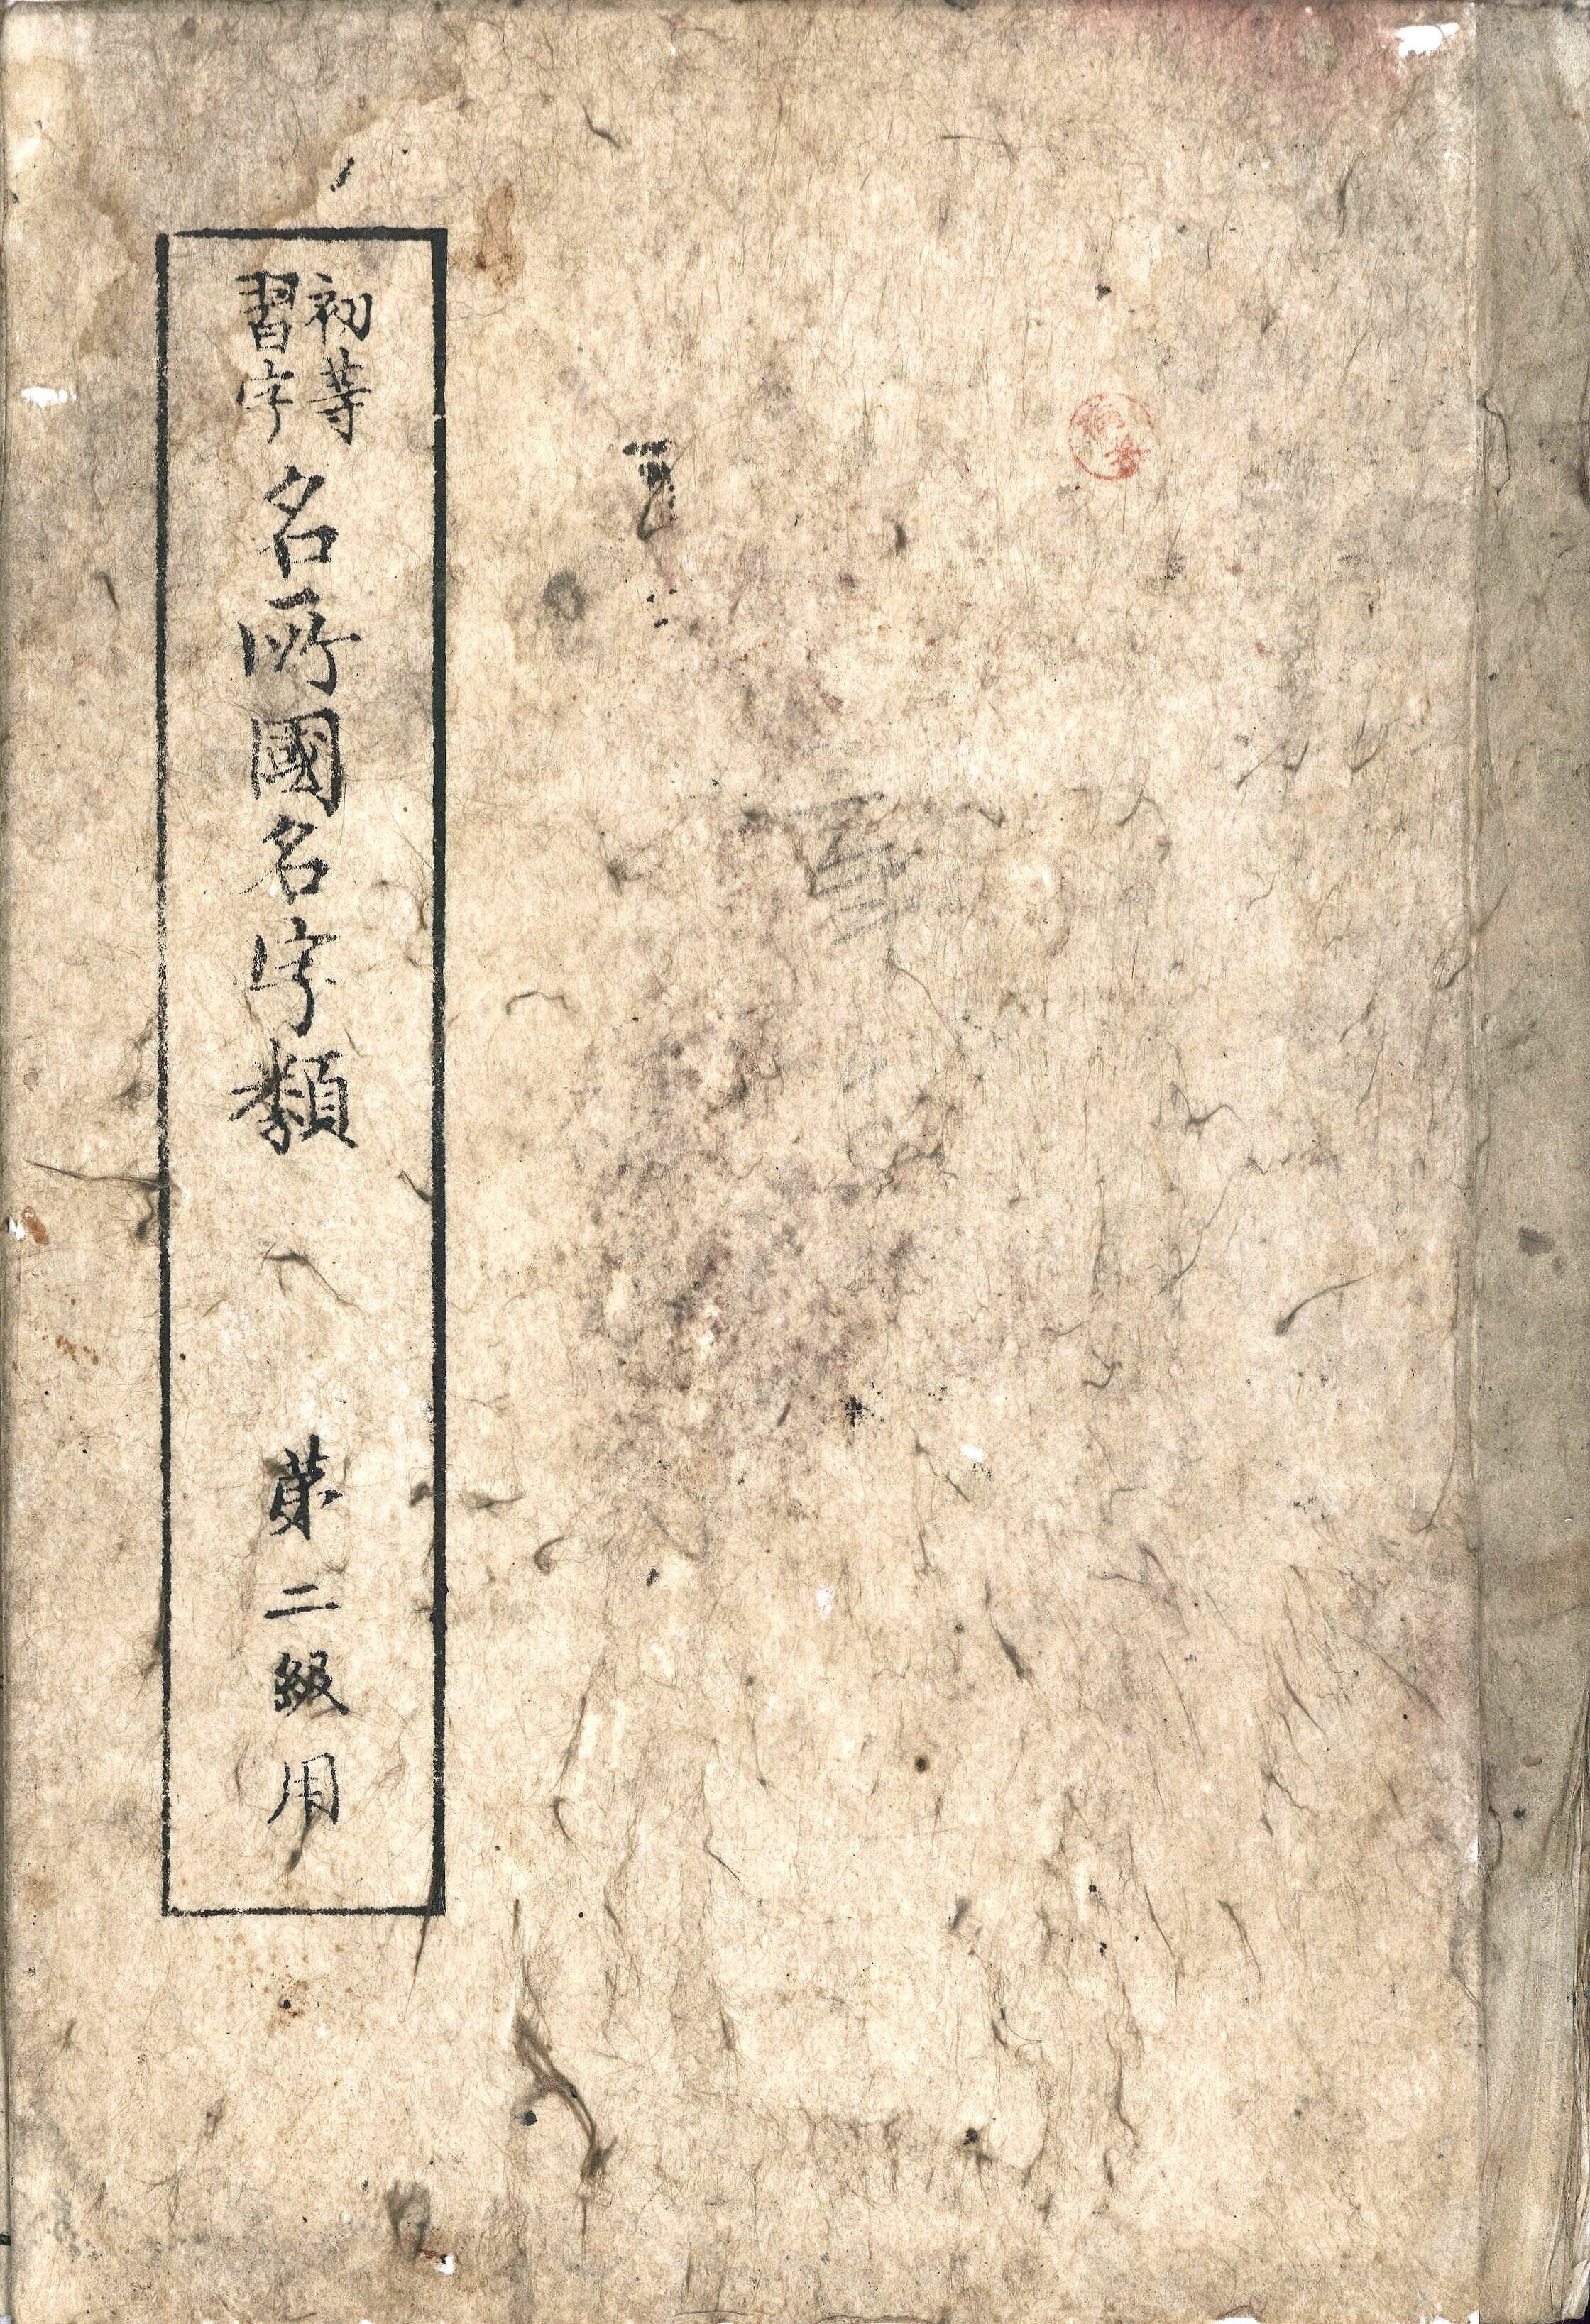 初等
習字
名所國名字類
第二級用